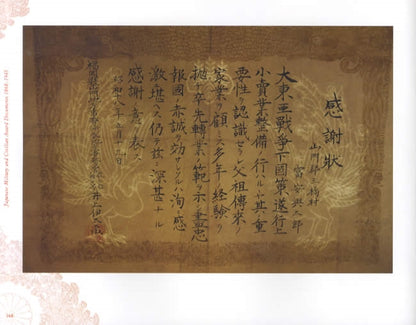 感謝状
山門郡三橋村
大東亜戦争下國策遂行上
小賣業整備ノ行ハルルヤ其重
要性ヲ認識セラレ父祖傳来ノ
家業ヲ顧ミス多年ノ経験ヲ
拋チ卒先轉業ノ範ヲ示シ盡忠
報國ノ赤誠ヲ効サレタルハ洵ニ感
激ニ堪ヘス仍テ茲ニ深甚ナル
感謝ノ意ヲ表ス
昭和十八年
Japanese Military and Civilian Award Documents 1868-1945
168